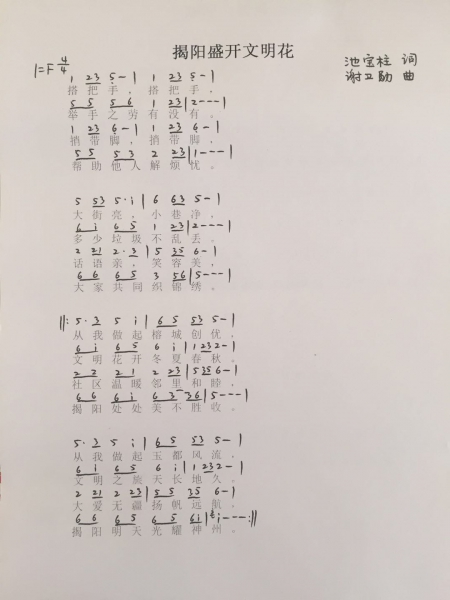 揭阳盛开文明花
1=F 4/4
池宝柱 词
谢卫勋 曲
1 23 5 - | 1 23 5 - |
搭把手，搭把手，
5 5 5 6 1 23 | 2 - - - |
举手之劳有没有。
1 23 6 - | 1 23 6 - |
捎带脚，捎带脚，
5 5 5 3 2 23 | 1 - - - |
帮助他人解烦忧。
5 53 5 · i | 6 63 5 - |
大街亮，小巷净，
6 i 6 5 1 23 | 2 - - - |
多少垃圾不乱丢。
2 21 2 · 3 | 5 35 6 - |
话语亲，笑容美，
6 6 6 5 3 56 | 5 - - - |
大家共同织锦绣。
||: 5 · 3 5 i | 6 5 53 5 - |
从我做起榕城创优，
6 i 6 5 6 i | 1 23 2 - |
文明花开冬夏春秋。
2 2 2 1 2 23 | 5 35 6 - |
社区温暖邻里和睦，
6 6 6 i 6 3 36 | 5 - - - |
揭阳处处美不胜收。
5 · 3 5 i | 6 5 53 5 - |
从我做起玉都风流，
6 i 6 5 6 i | 1 23 2 - |
文明之旅天长地久。
2 21 2 23 | 5 5 35 6 - |
大爱无疆扬帆远航，
6 6 6 5 6 5 6i | i - - - :||
揭阳明天光耀神州。